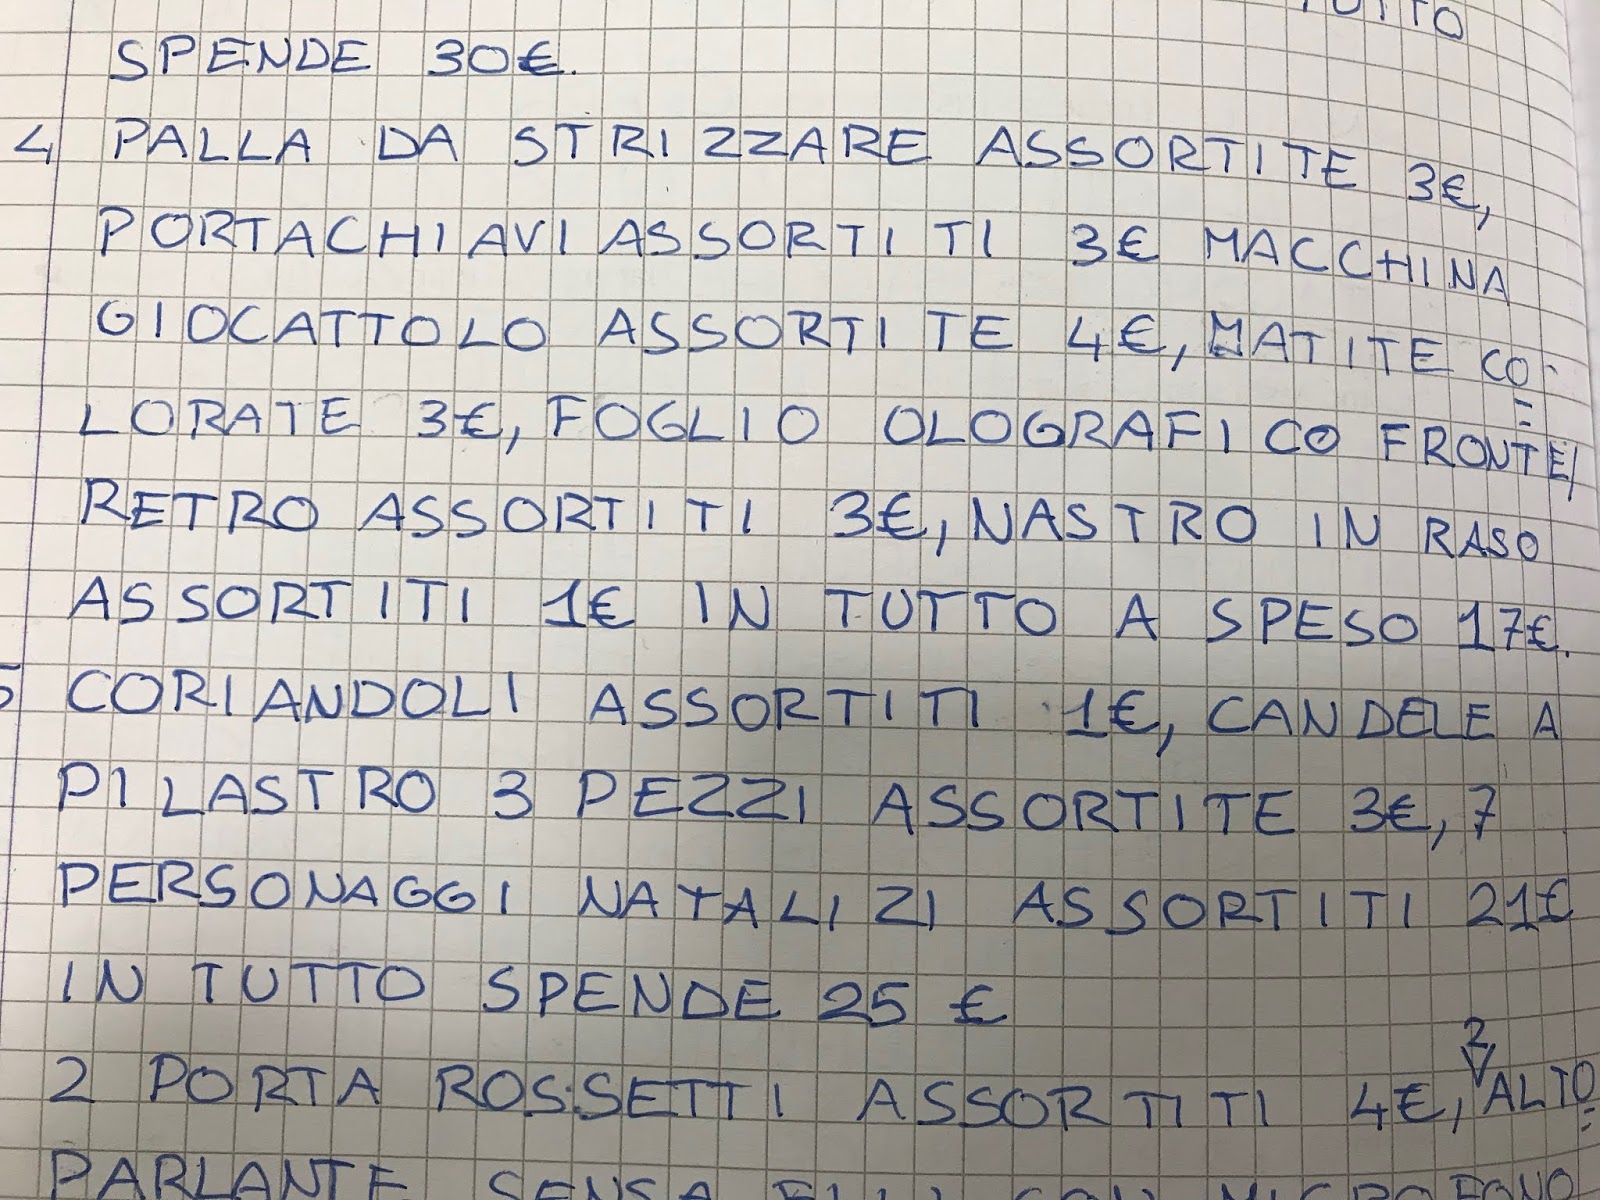 TUTTO
SPENDE 30€.
4 PALLA DA STRIZZARE ASSORTITE 3€,
PORTACHIAVI ASSORTITI 3€ MACCHINA
GIOCATTOLO ASSORTITE 4€, MATITE CO=
LORATE 3€, FOGLIO OLOGRAFICO FRONTE/
RETRO ASSORTITI 3€, NASTRO IN RASO
ASSORTITI 1€ IN TUTTO A SPESO 17€.
5 CORIANDOLI ASSORTITI 1€, CANDELE A
PILASTRO 3 PEZZI ASSORTITE 3€, 7
PERSONAGGI NATALIZI ASSORTITI 21€
IN TUTTO SPENDE 25 €
2 PORTA ROSSETTI ASSORTITI 4€, 2 ALTO=
PARLANTE SENSA FILI CON MICROFONO